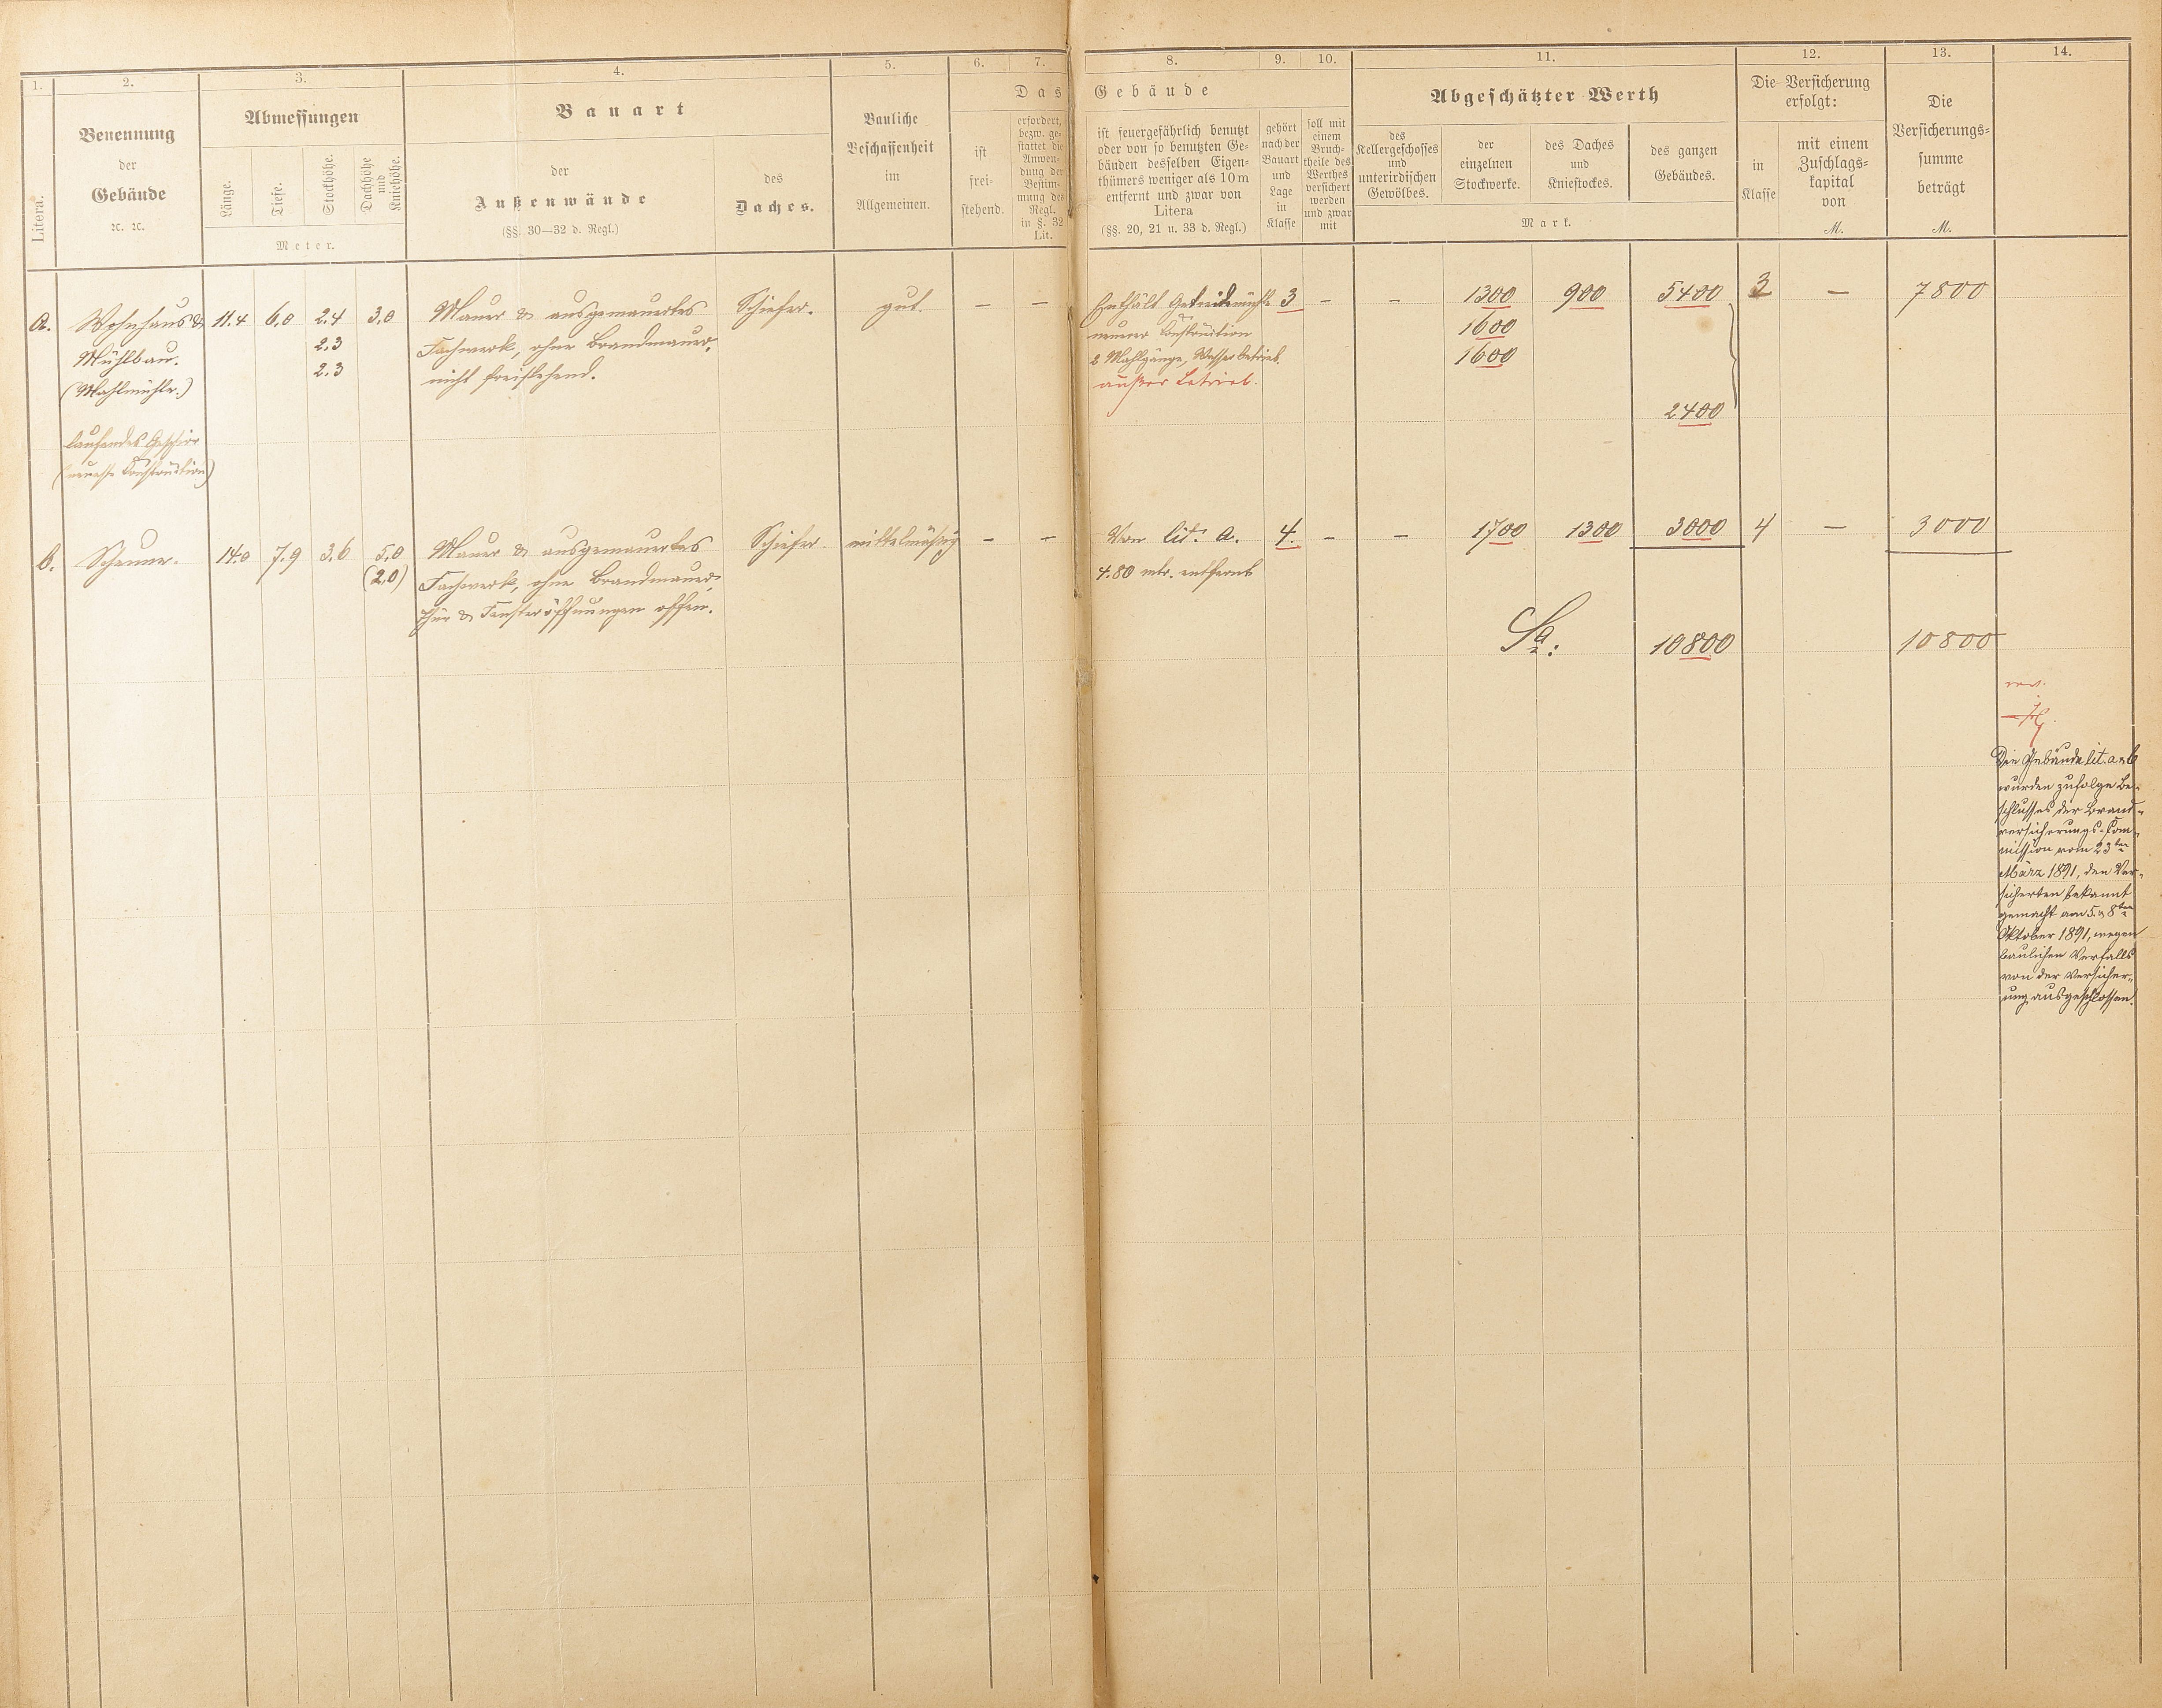 1.
2.
3.
4.
5.
6.
7.
8.
9.
10.
11.
12.
13.
14.
Litera.
Benennung
der
Gebäude
ꝛc. ꝛc.
Abmessungen
Länge.
Tiefe.
Stockhöhe.
Dachhöhe
und
Kniehöhe.
Meter.
Bauart
der
Außenwände
(§§. 30—32 d. Regl.)
des
Daches.
Bauliche
Beschaffenheit
im
Allgemeinen.
Das Gebäude
ist
frei-
stehend.
erfordert,
bezw. ge-
stattet die
Anwen-
dung der
Bestim-
mung des
Regl.
in §. 32
Lit.
ist feuergefährlich benutzt
oder von so benutzten Ge-
bäuden desselben Eigen-
thümers weniger als 10 m
entfernt und zwar von
Litera
(§§. 20, 21 u. 33 d. Regl.)
gehört
nach der
Bauart
und
Lage
in
Klasse
soll mit
einem
Bruch-
theile des
Werthes
versichert
werden
und zwar
mit
Abgeschätzter Werth
des
Kellergeschosses
und
unterirdischen
Gewölbes.
der
einzelnen
Stockwerke.
des Daches
und
Kniestockes.
des ganzen
Gebäudes.
Mark.
Die Versicherung
erfolgt:
in
Klasse
mit einem
Zuschlags-
kapital
von
M.
Die
Versicherungs-
summe
beträgt
M.
a. Wohnhaus & 11.4 6,0 2.4 3,0 Mauer & ausgemauertes Schiefer. gut. — — Enthält Getreidemühle 3 — — 1300 900 5400 3 — 7800
Mühlbau. 2,3 Fachwerk, ohne Brandmauer, neuerer Construction 1600
(Mahlmühle.) 2,3 nicht freistehend. 2 Mahlgänge, Wasserbetrieb. 1600
außer Betrieb.
2400
laufendes Geschirr
(neueste Construction)
b. Scheuer. 14.0 7.9 3,6 5,0 Mauer & ausgemauertes Schiefer. mittelmäßig — — Von lit. a. 4. — — 1700 1300 3000 4 — 3000
(2,0) Fachwerk, ohne Brandmauer, 4.80 mtr. entfernt
Thür & Fensteröffnungen offen.
Sa: 10800 10800
rev.
Die Gebäude lit. a & b
wurden zufolge Be-
schlusses der Brand-
versicherungs-Com-
mission vom 23ten
März 1891, den Ver-
sicherten bekannt
gemacht am 5. & 8ten
Oktober 1891, wegen
baulichen Verfalls
von der Versicher-
ung ausgeschlossen.